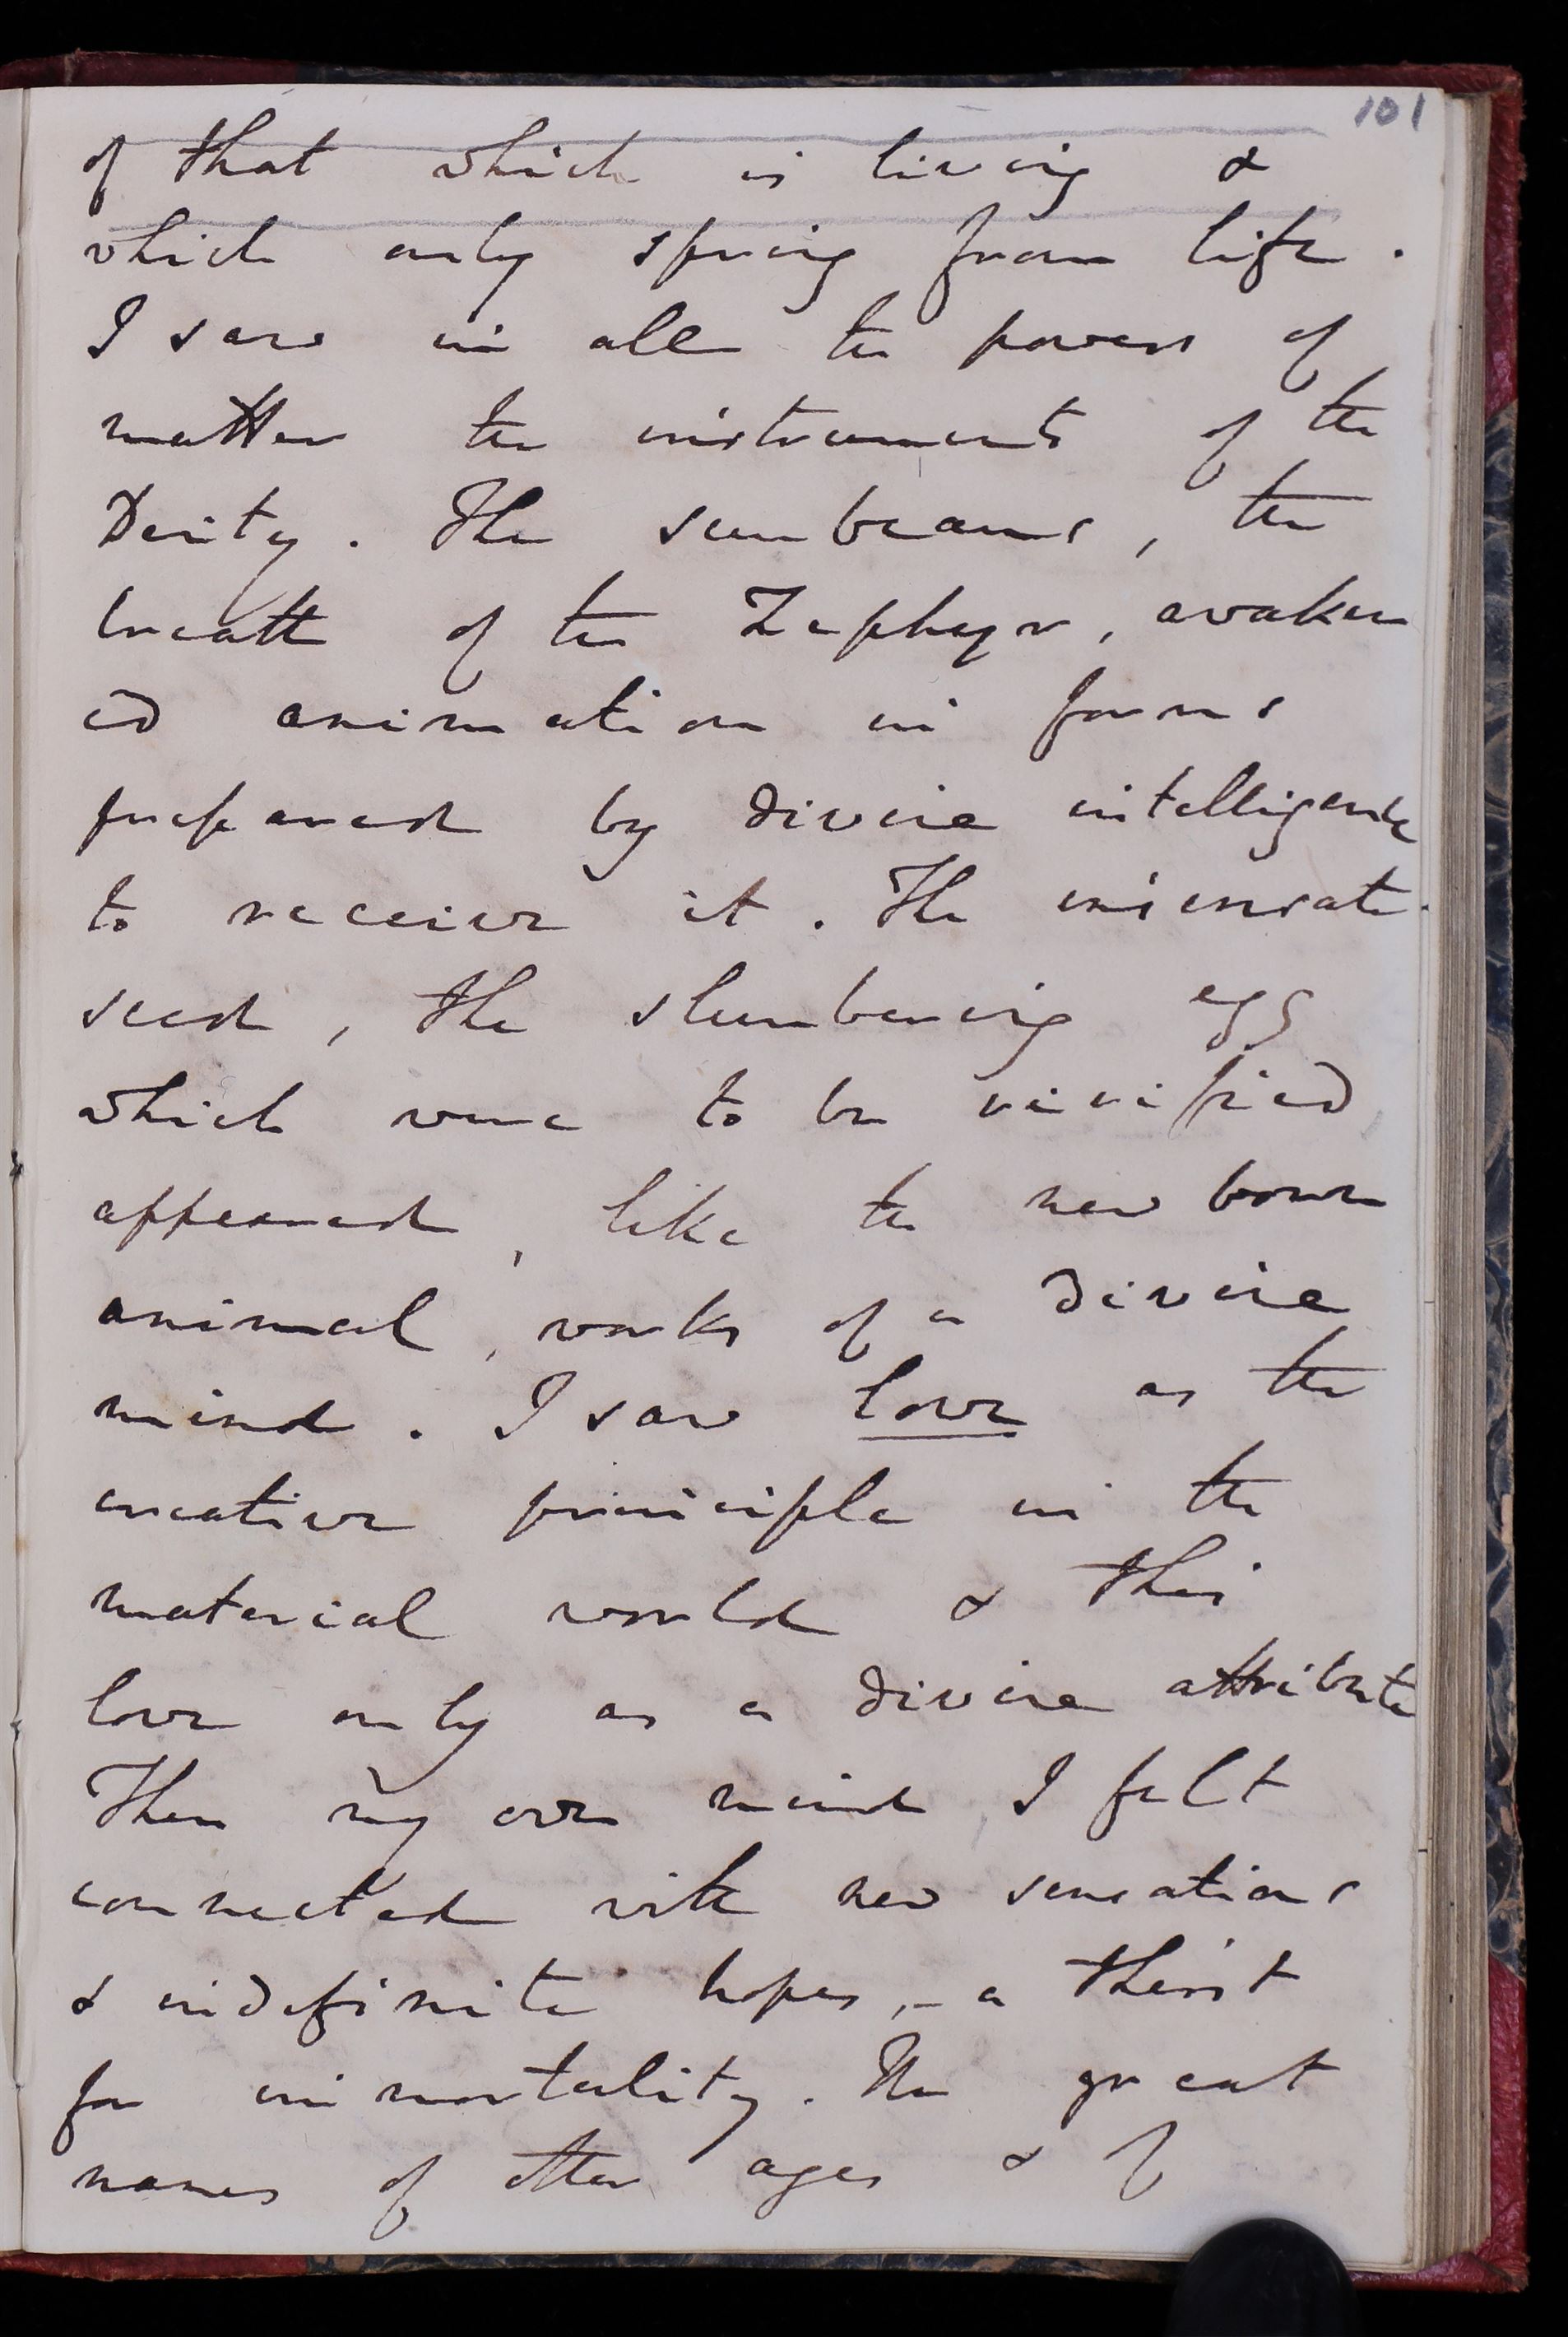 101
of that which is living &
which only spring from life.
I saw in all the powers of
matter the instruments of the
Deity. The sunbeams, the
breath of the Zephyr, awaken
ed animation in forms
prepared by divine intelligence
to receive it. The insensate
seed, the slumbering egg
which were to be vivified,
appeared, like the new born
animal, works of a divine
mind. I saw love as the
creative principle in the
material world & this
love only as a divine attribute
Then my own mind, I felt
connected with new sensations
& indefinite hopes, - a thirst
for immortality. The great
names of other ages & of